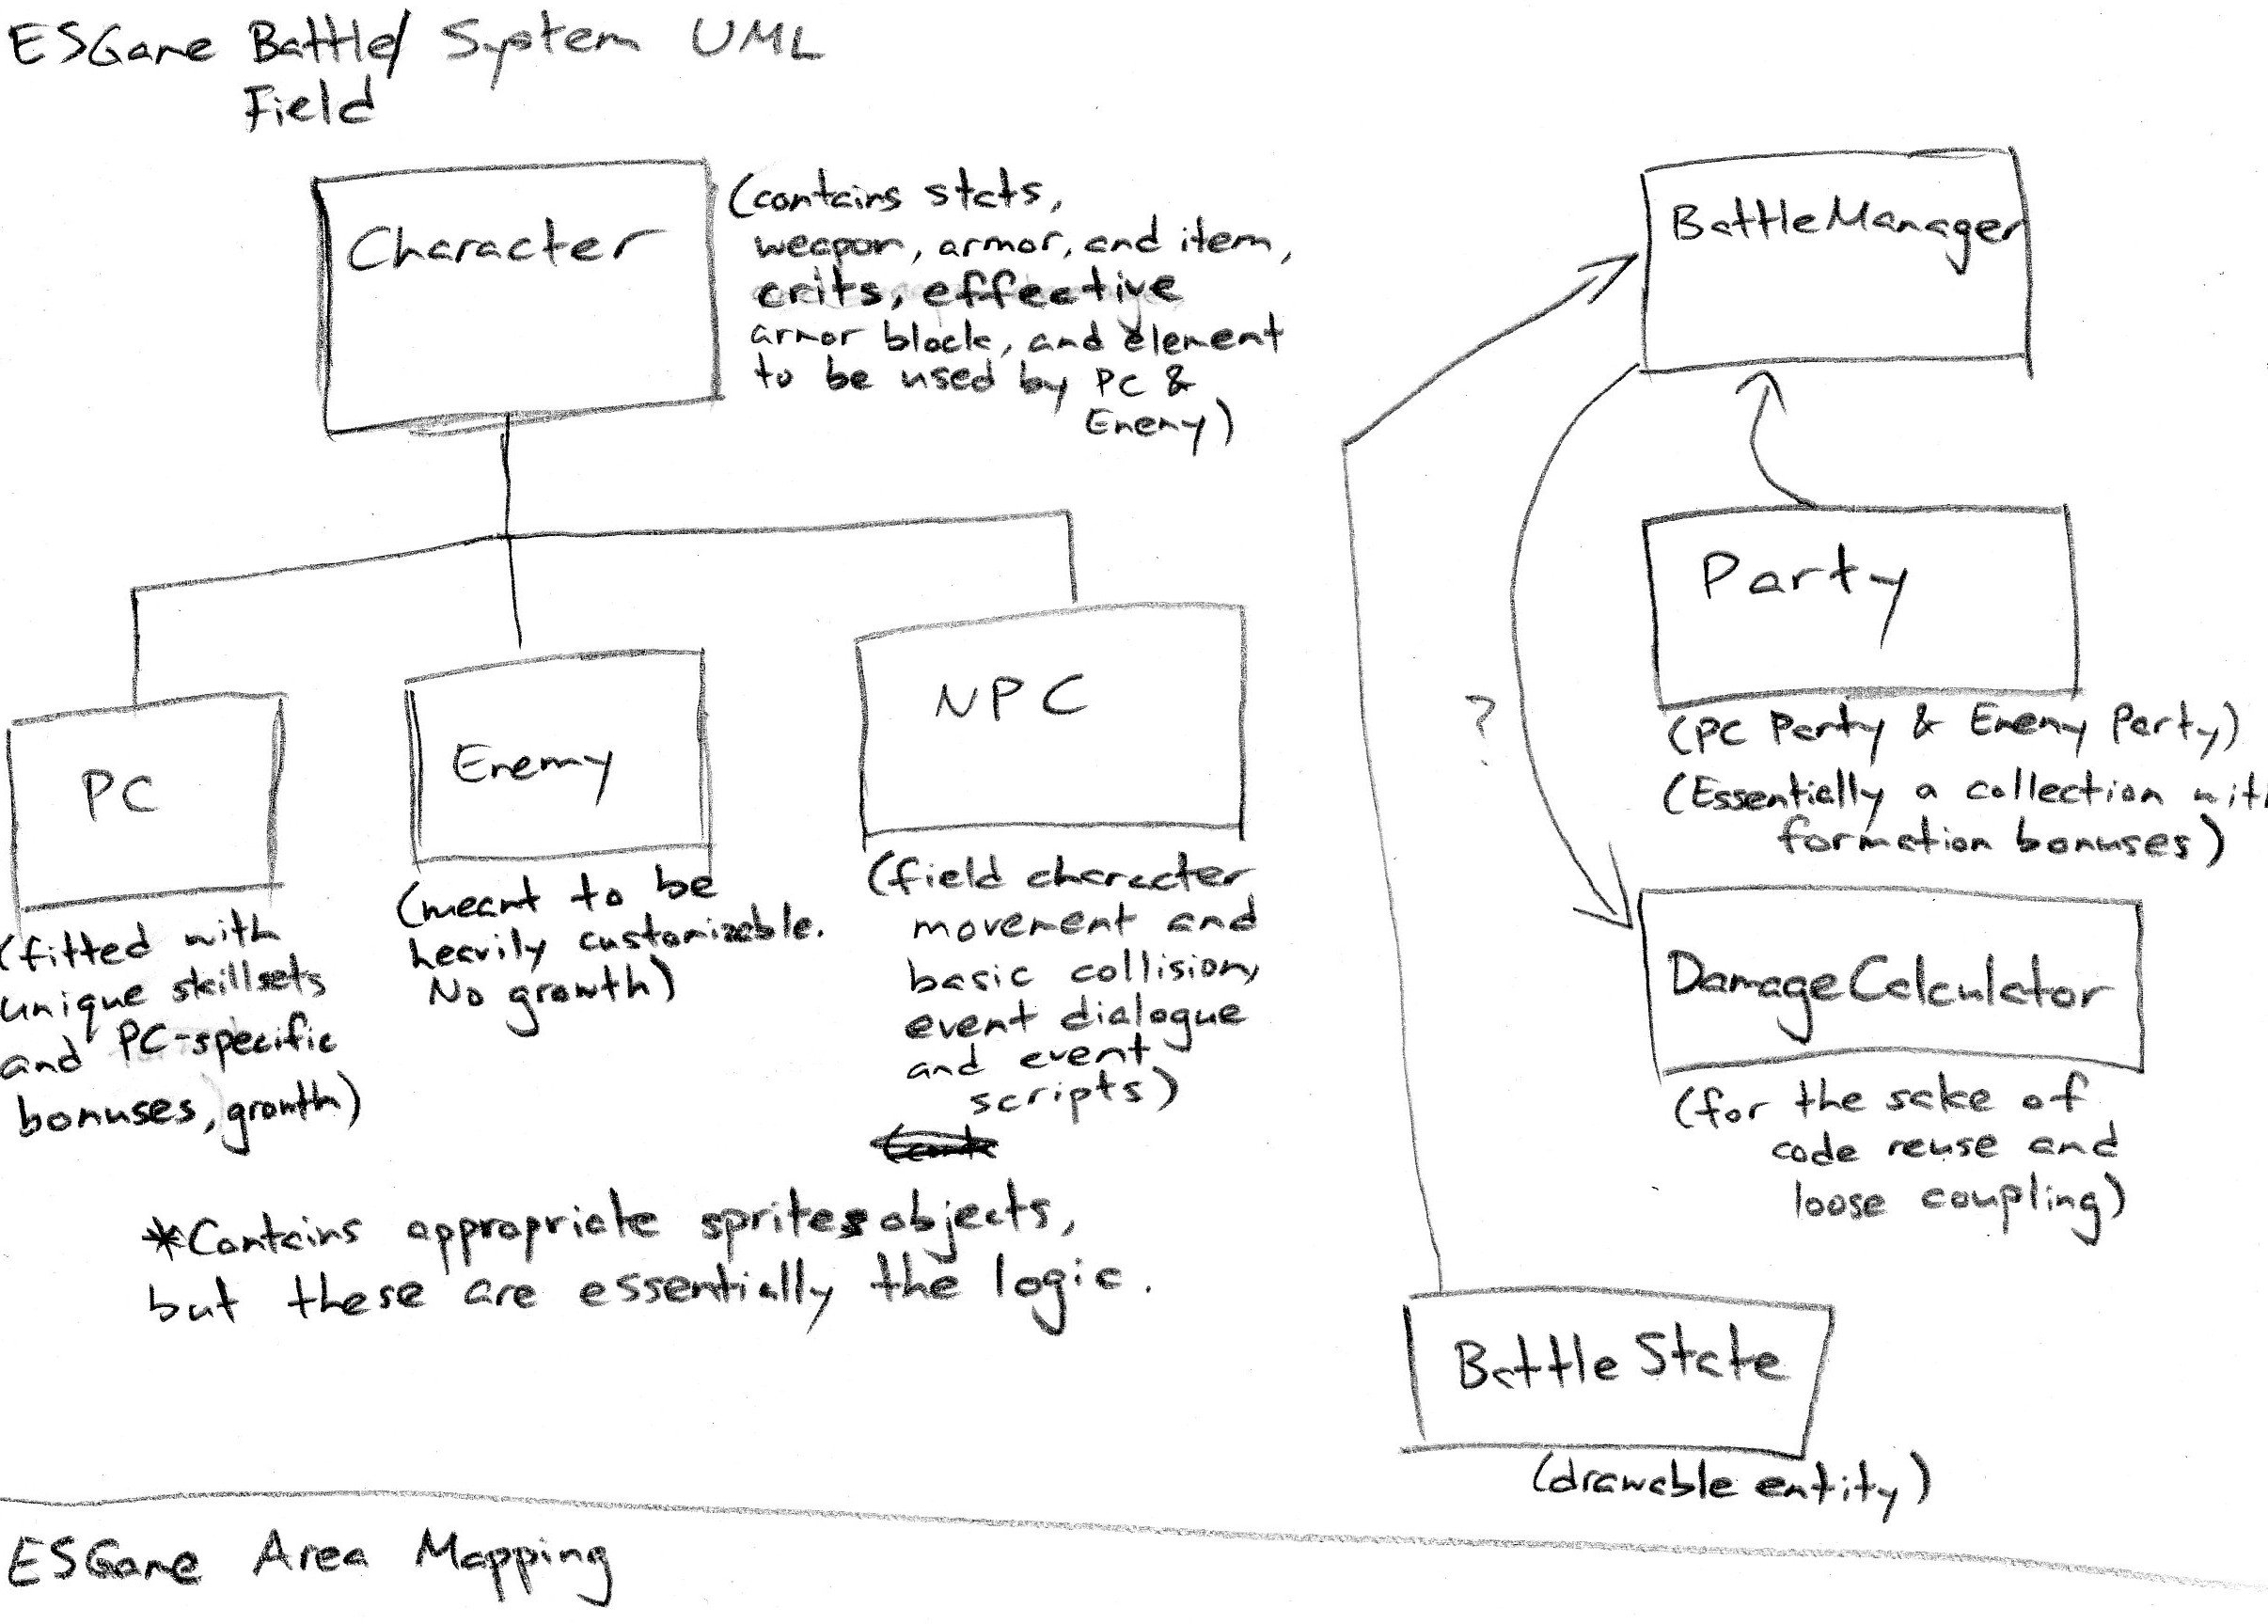 ESGame Battle/ System UML
Field
Character
(contains stats,
weapon, armor, and item,
crits, effective
armor block, and element
to be used by PC &
Enemy)
PC
(fitted with
unique skillsets
and PC-specific
bonuses, growth)
Enemy
(meant to be
heavily customizable.
No growth)
NPC
(field character
movement and
basic collision,
event dialogue
and event
scripts)
*Contains appropriate sprites objects,
but these are essentially the logic.
BattleManager
Party
(PC Party & Enemy Party)
(Essentially a collection with
formation bonuses)
?
DamageCalculator
(for the sake of
code reuse and
loose coupling)
BattleState
(drawable entity)
ESGame Area Mapping